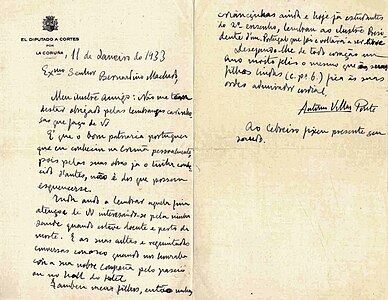 EL DIPUTADO A CORTES
POR
LA CORUÑA
11 de Janeiro de 1933
Exmo Senhor Bernardino Machado
Meu ilustre Amigo: Não me
destes obrigado pelas lembranças
sas que faço de V
É que o bom patriota português
que eu conheci na Coruña pessoalmente,
pois pelas suas obras já o tinha
cido d'antes, não é dos que possam
esquecerse.
Inda ando a lembrar aquela fria
V interesando-se pela minha
saude quando estive doente e perto da
morte. E as suas altas e requintadas
conversas conosco quando nos honraba
con a sua nobre compaña pelo passeio
ou no hall do hotel
Tambem meus filhos, então
criancinhas ainda e hoje já estudantes
do 2º ensenho, lembram ao ilustre Presi
dente d'um Portugal que há-
Desejando-lhe de todo coração um
ano novo pleno o mesmo que às suas
filhas lindas (c. p. b.) fica às suas
ordes admirador cordial,
Antonio Villar Ponte
Ao Cebreiro fizem presente seu
saudo.